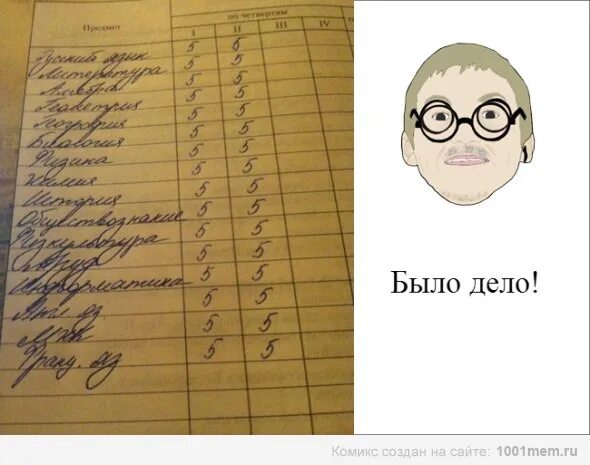 Предмет
по четвертям
I II III IV
Русский язык 5 5
Литература 5 5
Алгебра 5 5
Геометрия 5 5
География 5 5
Биология 5 5
Физика 5 5
Химия 5 5
История 5 5
Обществознание 5 5
Физкультура 5 5
Труд 5 5
Информатика 5 5
Анг. яз 5 5
МХК 5 5
Франц. яз 5 5
Было дело!
Комикс создан на сайте: 1001mem.ru